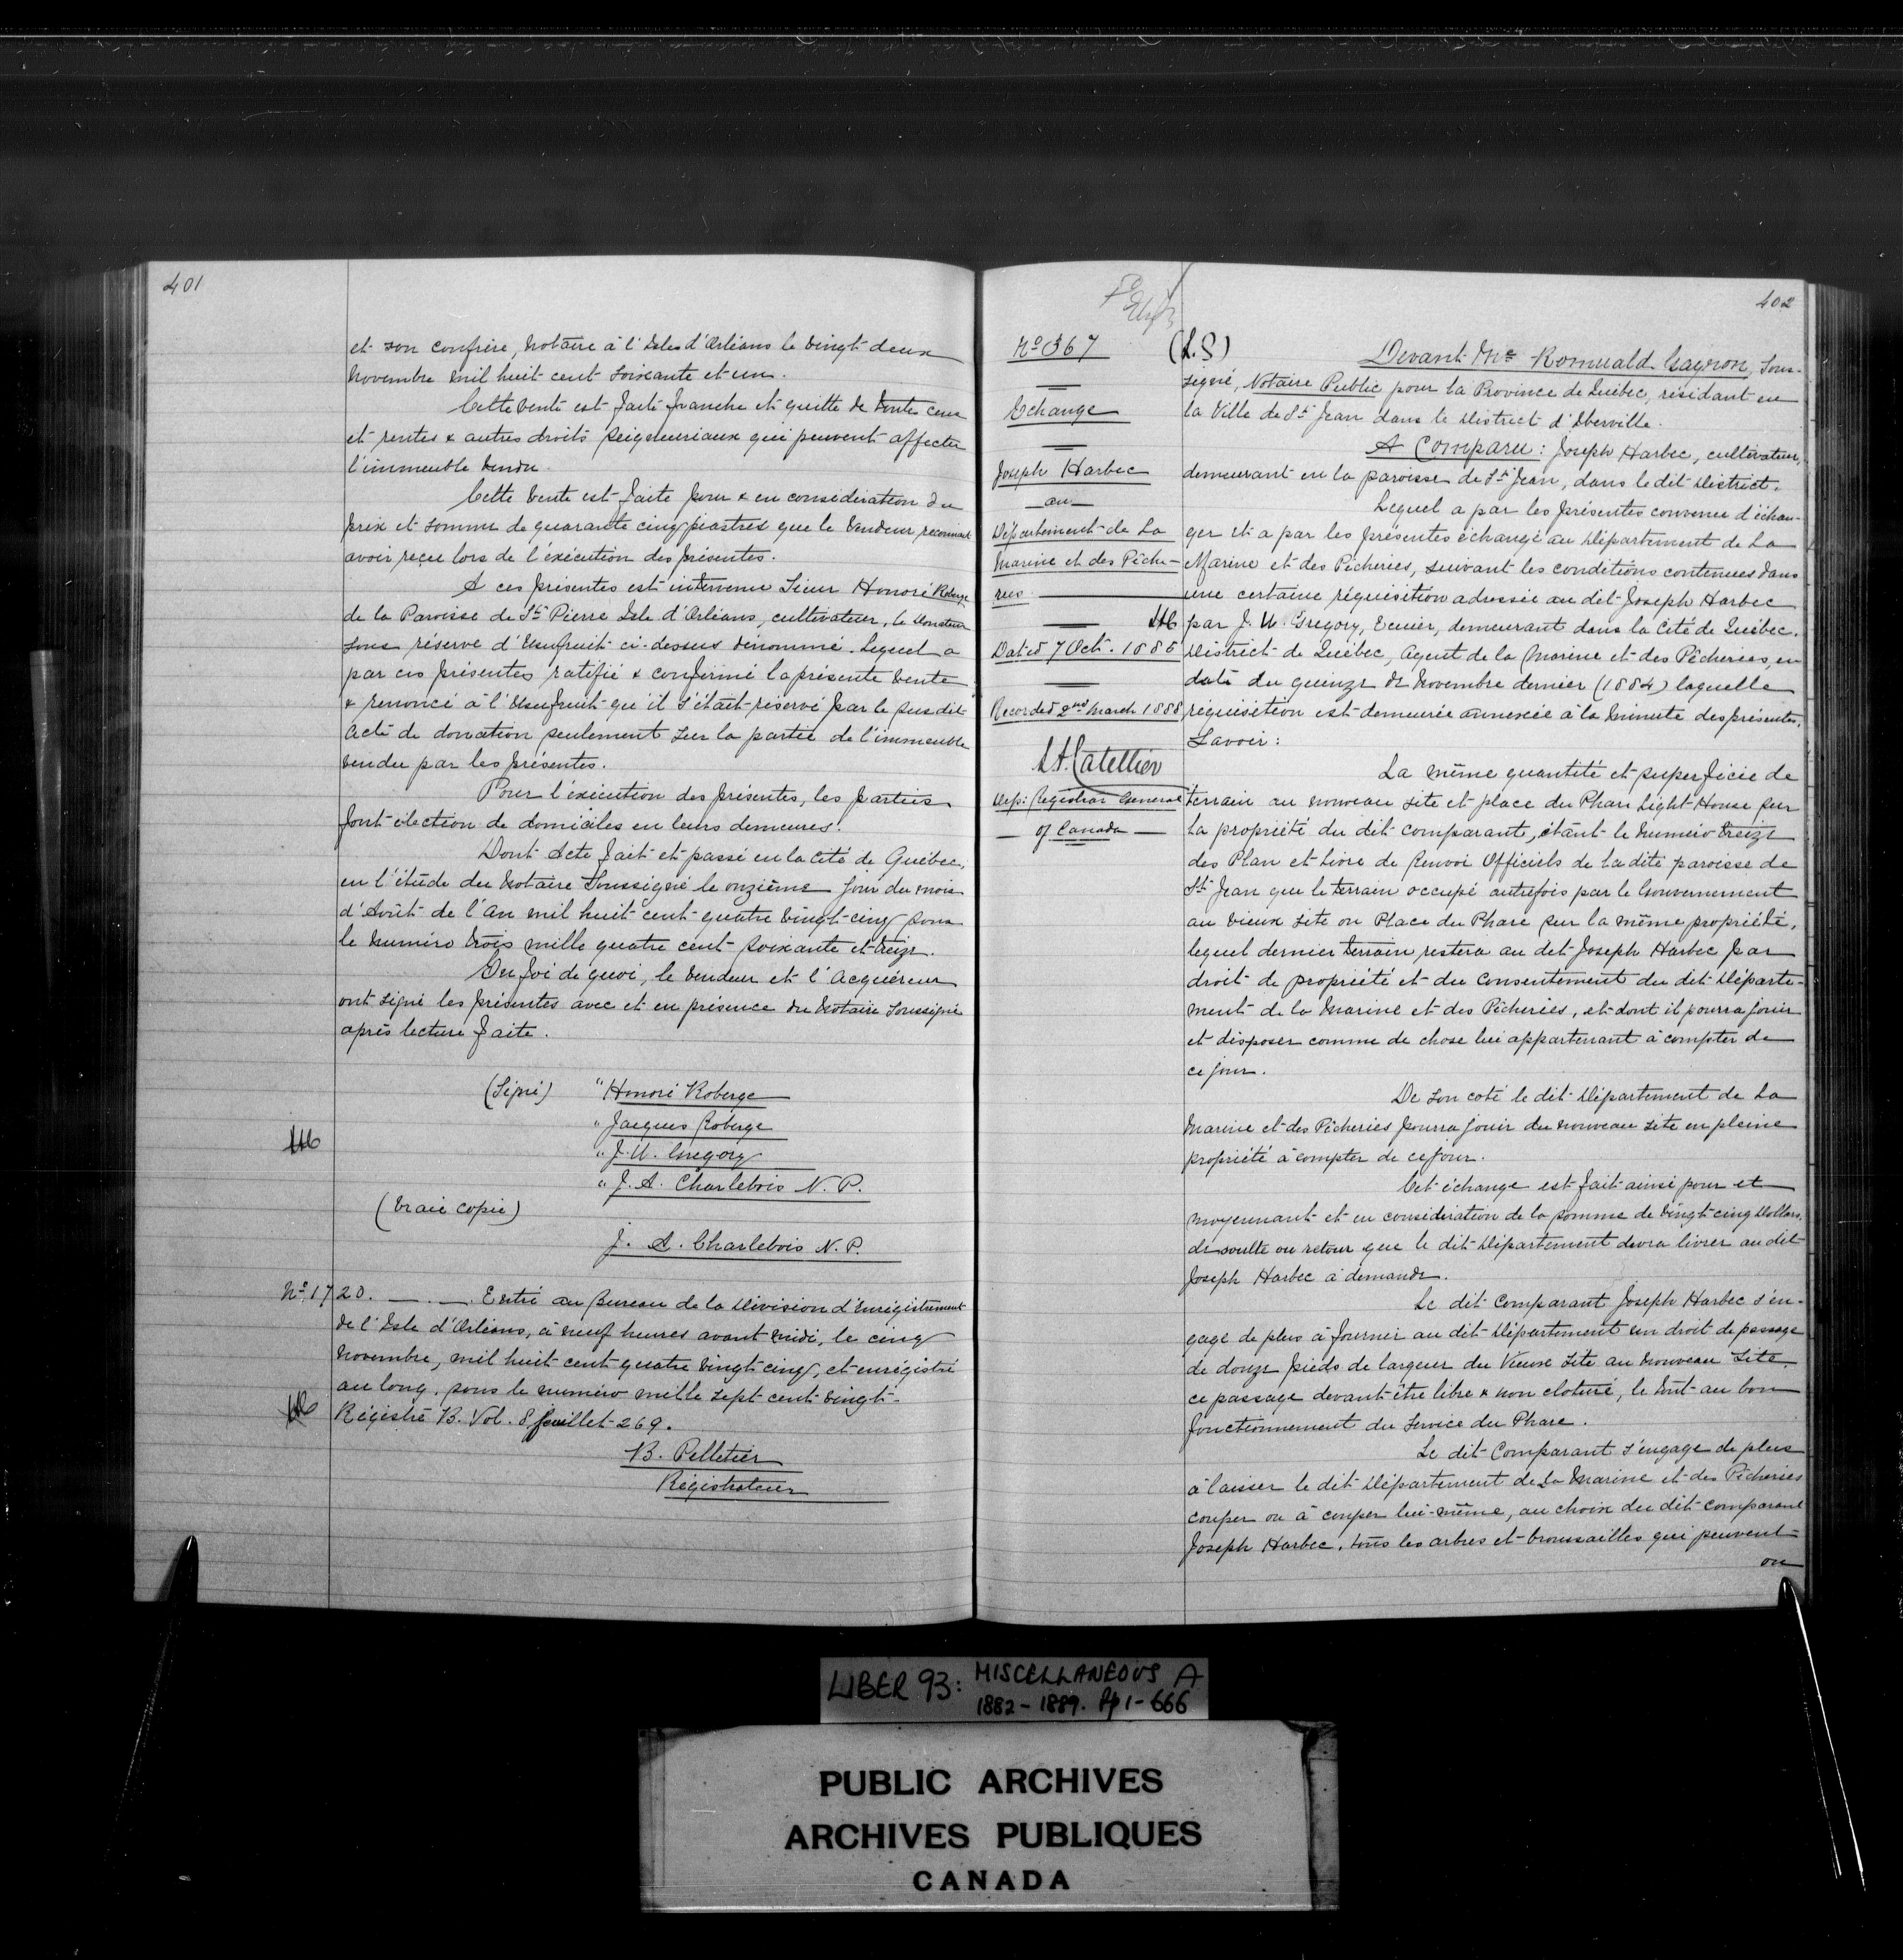 401
et son confrère, Notaire à l'Isle d'Orléans le vingt deux
Novembre mil huit cent soixante et un.
Cette vente est faite franche et quitte de toute cens
et rentes & autres droits seigneuriaux qui peuvent affecter
l'immeuble vendu.
Cette vente est faite pour & en considération du
prix et somme de quarante cinq piastres que le vendeur reconnait
avoir reçu lors de l'exécution des présentes.
A ces présentes est intervenu Sieur Honoré Roberge
de la Paroisse de St Pierre Isle d'Orléans, cultivateur, le Donateur
sous réserve d'Usufruit ci-dessus dénommé. Lequel a
par ces présentes ratifié & confirmé la présente vente
& renoncé à l'Usufruit qu'il s'était réservé par le susdit
Acte de donation seulement sur la partie de l'immeuble
vendu par les présentes.
Pour l'exécution des présentes, les parties
font élection de domiciles en leurs demeures.
Dont Acte fait et passé en la Cité de Québec,
en l'étude du Notaire Soussigné le onzième jour du mois
d'Août de l'An mil huit cent quatre vingt cinq sous
le numéro trois mille quatre cent soixante et treize.
En foi de quoi, le vendeur et l'Acquéreur
ont signé les présentes avec et en présence du Notaire Soussigné
après lecture faite.
(Signé) "Honoré Roberge
"Jacques Roberge
"J. U. Gregory
"J. A. Charlebois N. P.
(Vraie copie)
J. A. Charlebois N. P.
No 1720. Entré au Bureau de la Division d'Enrégistrement
de l'Isle d'Orléans, à neuf heures avant midi, le cinq
Novembre, mil huit cent quatre vingt cinq, et enrégistré
au long, sous le numéro mille sept cent vingt.
Régistre B. Vol. 8 feuillet 269.
B. Pelletier
Régistrateur
402
No 367
Echange
Joseph Harbec
au
Département de La
Marine et des Pêche-
ries
Dated 7 Oct. 1885
Recorded 2nd March 1888
L.A. Catellier
Dep: Registrar General
of Canada
(L.S) Devant Me Romuald Gayron, Sous-
signé, Notaire Public pour la Province de Québec, résidant en
la Ville de St Jean dans le District d'Iberville.
A Comparu: Joseph Harbec, cultivateur,
demeurant en la paroisse de St Jean, dans le dit District.
Lequel a par les présentes convenu d'échan-
ger et a par les présentes échangé au Département de La
Marine et des Pêcheries, suivant les conditions contenues dans
une certaine réquisition adressée au dit Joseph Harbec
par J. U. Gregory, Ecuier, demeurant dans la Cité de Québec,
District de Québec, Agent de la Marine et des Pêcheries, en
date du quinze de Novembre dernier (1884) laquelle
réquisition est demeurée annexée à la minute des présentes.
Savoir:
La même quantité et superficie de
terrain au nouveau site et place du Phare Light-House sur
la propriété du dit comparant, étant le numéro treize
des Plan et Livre de Renvoi Officiels de la dite paroisse de
St Jean que le terrain occupé autrefois par le Gouvernement
au vieux site ou Place du Phare sur la même propriété,
lequel dernier terrain restera au dit Joseph Harbec par
droit de propriété et du consentement du dit Départe-
ment de la Marine et des Pêcheries, et dont il pourra jouir
et disposer comme de chose lui appartenant à compter de
ce jour.
De son coté le dit Département de La
Marine et des Pêcheries pourra jouir du nouveau site en pleine
propriété à compter de ce jour.
Cet échange est fait ainsi pour et
moyennant et en considération de la somme de vingt cinq Dollars,
de soulte ou retour que le dit Département devra livrer au dit
Joseph Harbec à demande.
Le dit Comparant Joseph Harbec s'en-
gage de plus à fournir au dit Département un droit de passage
de douze pieds de largeur du Vieux Site au nouveau Site,
ce passage devant être libre & non cloturé, le tout au bon
fonctionnement du Service du Phare.
Le dit Comparant s'engage de plus
à laisser le dit Département de La Marine et des Pêcheries
couper ou à couper lui-même, au choix du dit comparant
Joseph Harbec, tous les arbres et broussailles qui peuvent
ou
LIBER 93: MISCELLANEOUS A
1882-1889. Pp 1-666
PUBLIC ARCHIVES
ARCHIVES PUBLIQUES
CANADA